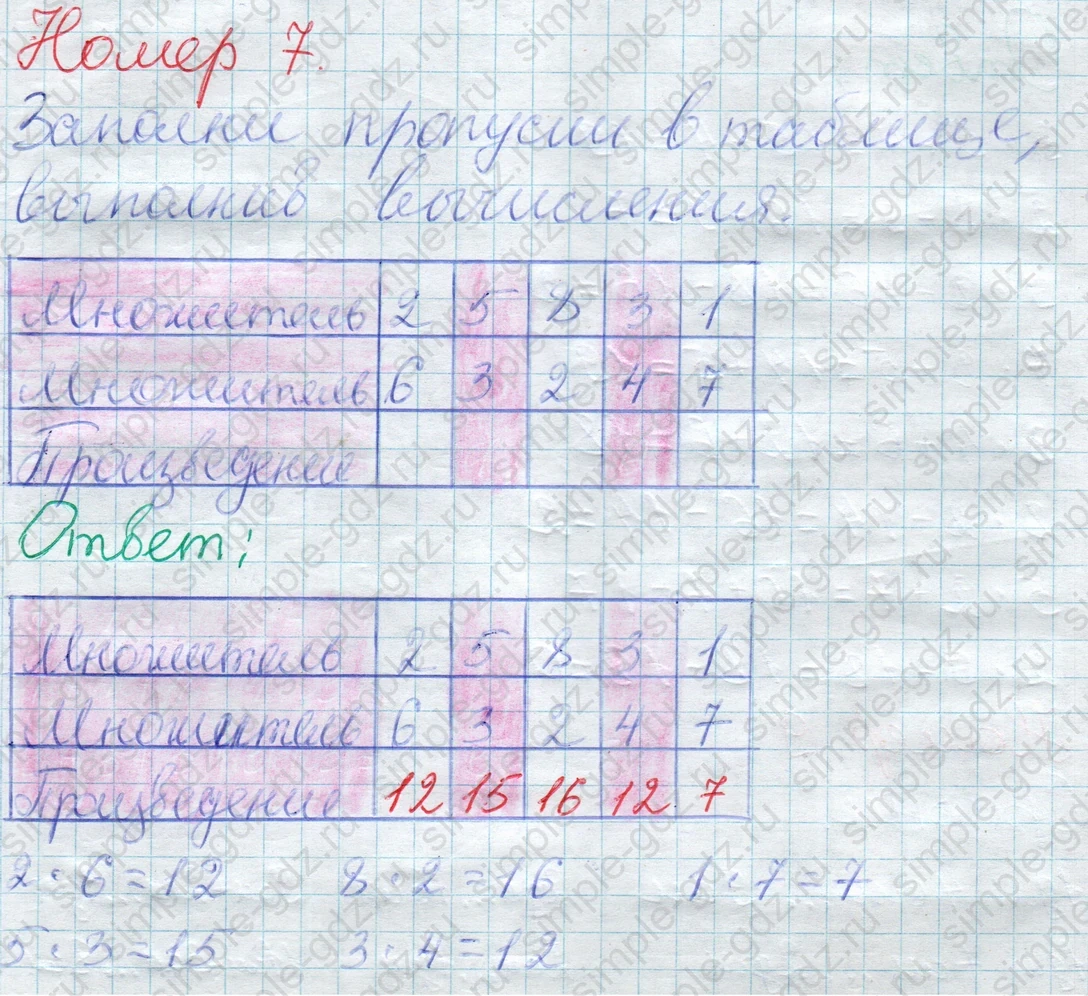 Номер 7.
Заполни пропуски в таблице,
выполнив вычисления.
Множитель 2 5 8 3 1
Множитель 6 3 2 4 7
Произведение
Ответ:
Множитель 2 5 8 3 1
Множитель 6 3 2 4 7
Произведение 12 15 16 12 7
2 · 6 = 12 8 · 2 = 16 1 · 7 = 7
5 · 3 = 15 3 · 4 = 12
simple-gdz.ru